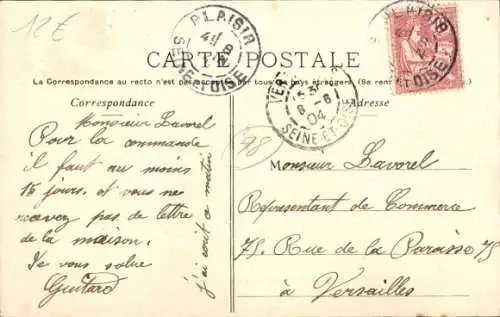 12€
PLAISIR
SEINE ET OISE
CARTE POSTALE
PLAISIR
ET OISE
La Correspondance au recto n'est pas par tous les pays étrangers. (Se
Correspondance
Adresse
SEINE-ET-OISE
8 -8
04
78
Monsieur Lavorel
Pour la commande
il faut au moins
15 jours. et vous ne
recevez pas de lettre
de la maison.
Je vous salue
Guitard
j'ai écrit ce matin
Monsieur Lavorel
Représentant de Commerce
75 Rue de la Paroisse 75
à Versailles